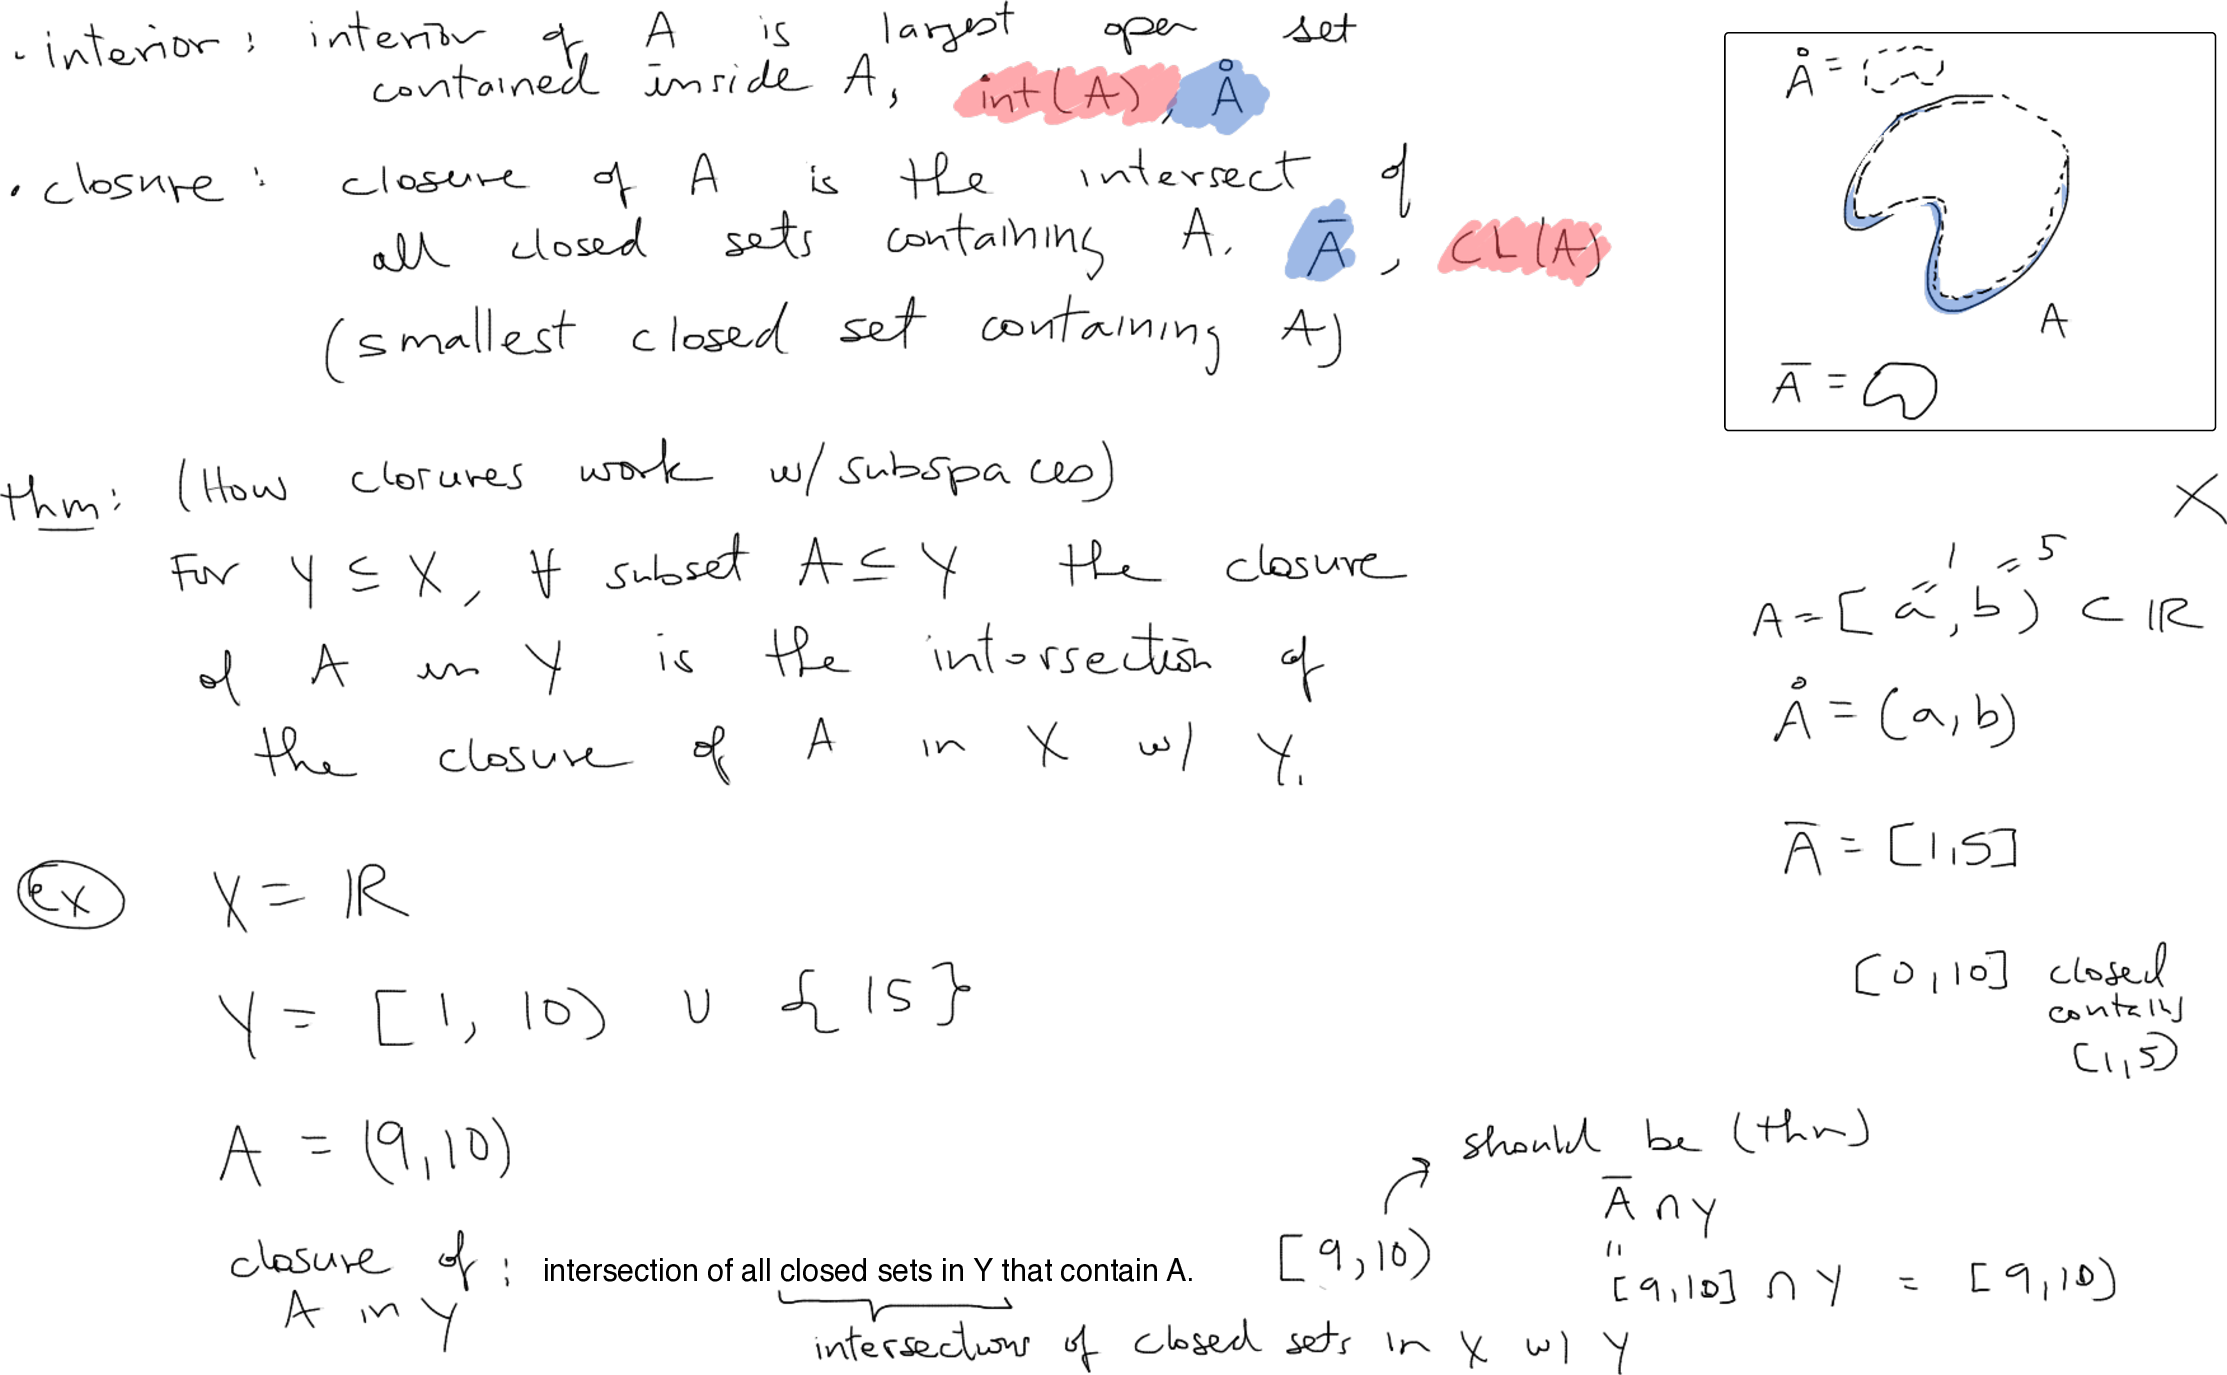 • interior: interior of A is largest open set
contained inside A, int(A), Å
• closure: closure of A is the intersect of
all closed sets containing A. Ā, CL(A)
(smallest closed set containing A)
Å =
A
Ā =
thm: (How closures work w/ subspaces)
For Y ⊆ X, ∀ subset A ⊆ Y the closure
of A in Y is the intersection of
the closure of A in X w/ Y.
X
1 = 5
A = [a, b) ⊂ ℝ
Å = (a, b)
Ā = [1,5]
[0,10] closed
contains
[1,5)
ex X = ℝ
Y = [1, 10) ∪ {15}
A = (9,10)
closure of : intersection of all closed sets in Y that contain A. [9,10)
A in Y
intersections of closed sets in X w/ Y
should be (thm)
Ā ∩ Y
"
[9,10] ∩ Y = [9,10)